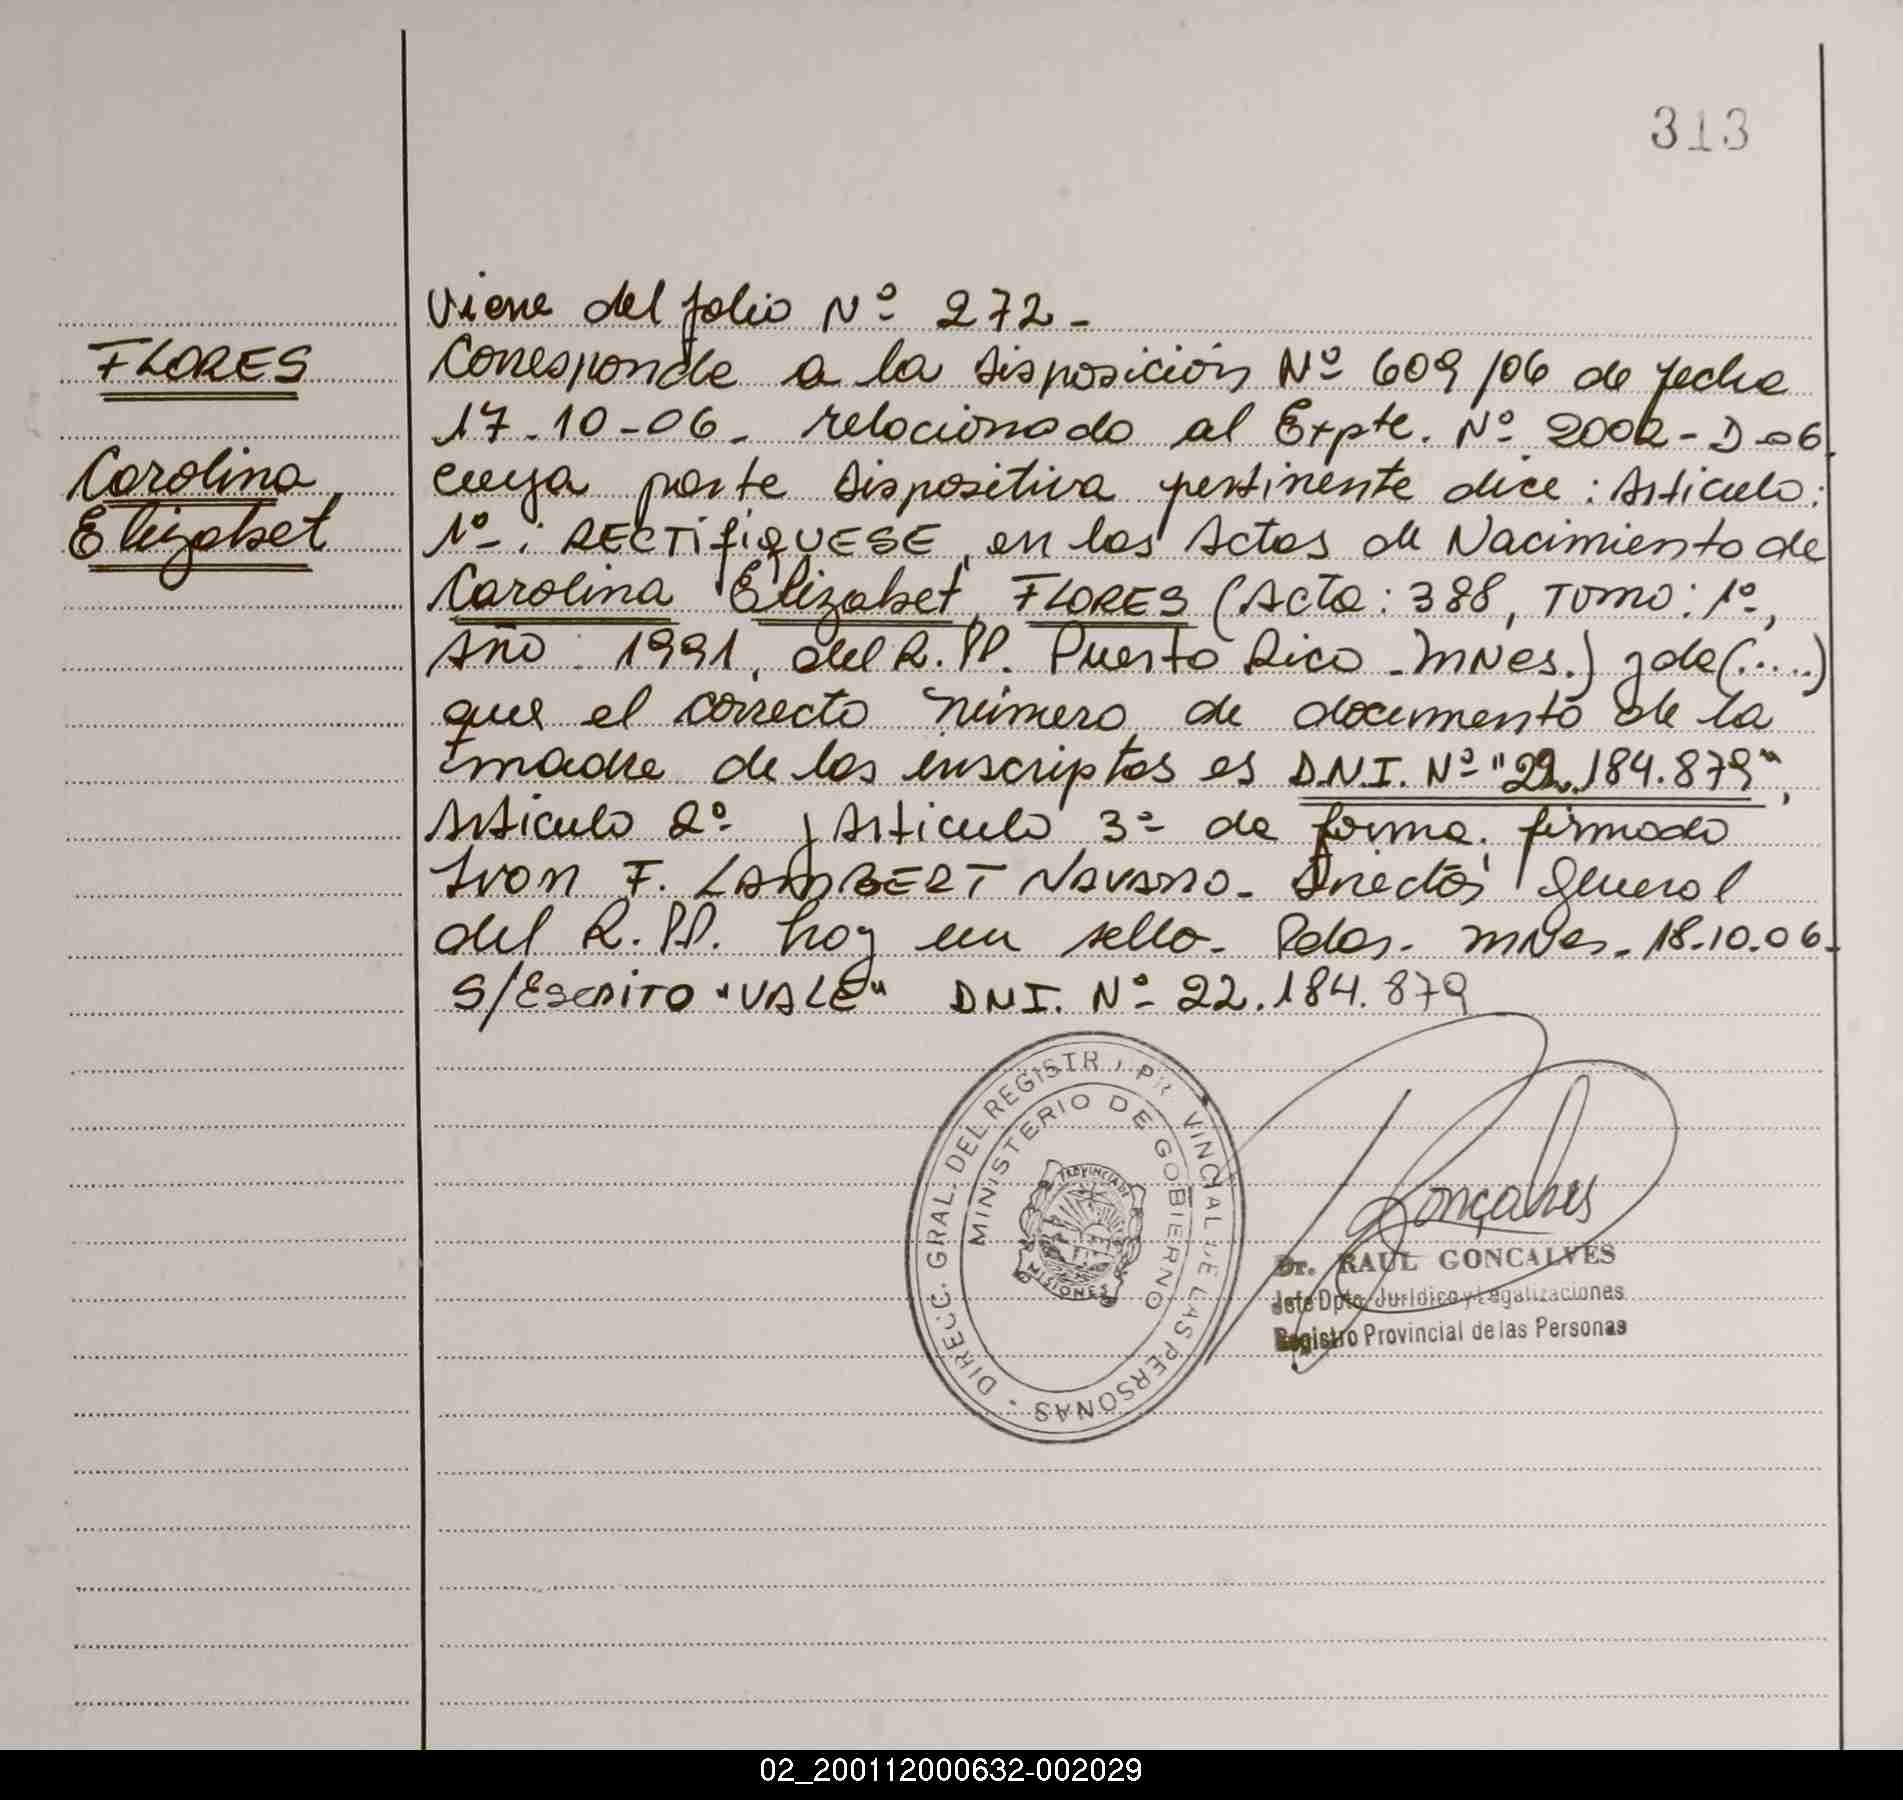 313
Viene del folio Nº 272 -
FLORES
Corresponde a la disposición Nº 609/06 de fecha
17-10-06- relacionado al Expte. Nº 2002-D-06,
Carolina
cuya parte dispositiva pertinente dice: Artículo:
Elizabet
1º-: RECTIFIQUESE, en las Actas de Nacimiento de
Carolina Elizabet, FLORES (Acta: 388, Tomo: 1º,
Año: 1991, del R.PP. Puerto Rico - MNes.) y de (.....)
que el correcto número de documento de la
madre de los inscriptos es D.N.I. Nº "22.184.879",
Artículo 2º y Artículo 3º de forma. firmado
Ivon F. LAMBERT NAVARRO- Director General
del R.PP. hay un sello- Pdas- MNes- 18-10-06-
S/ESCRITO "VALE" DNI. Nº 22.184.879
DIRECC. GRAL. DEL REGISTR PR VINCIAL DE LAS PERSONAS
MINISTERIO DE GOBIERNO
PROVINCIA DE
MISIONES
Gonçalves
Dr. RAUL GONCALVES
Jefe Dpto. Jurídico y Legalizaciones
Registro Provincial de las Personas
02_200112000632-002029